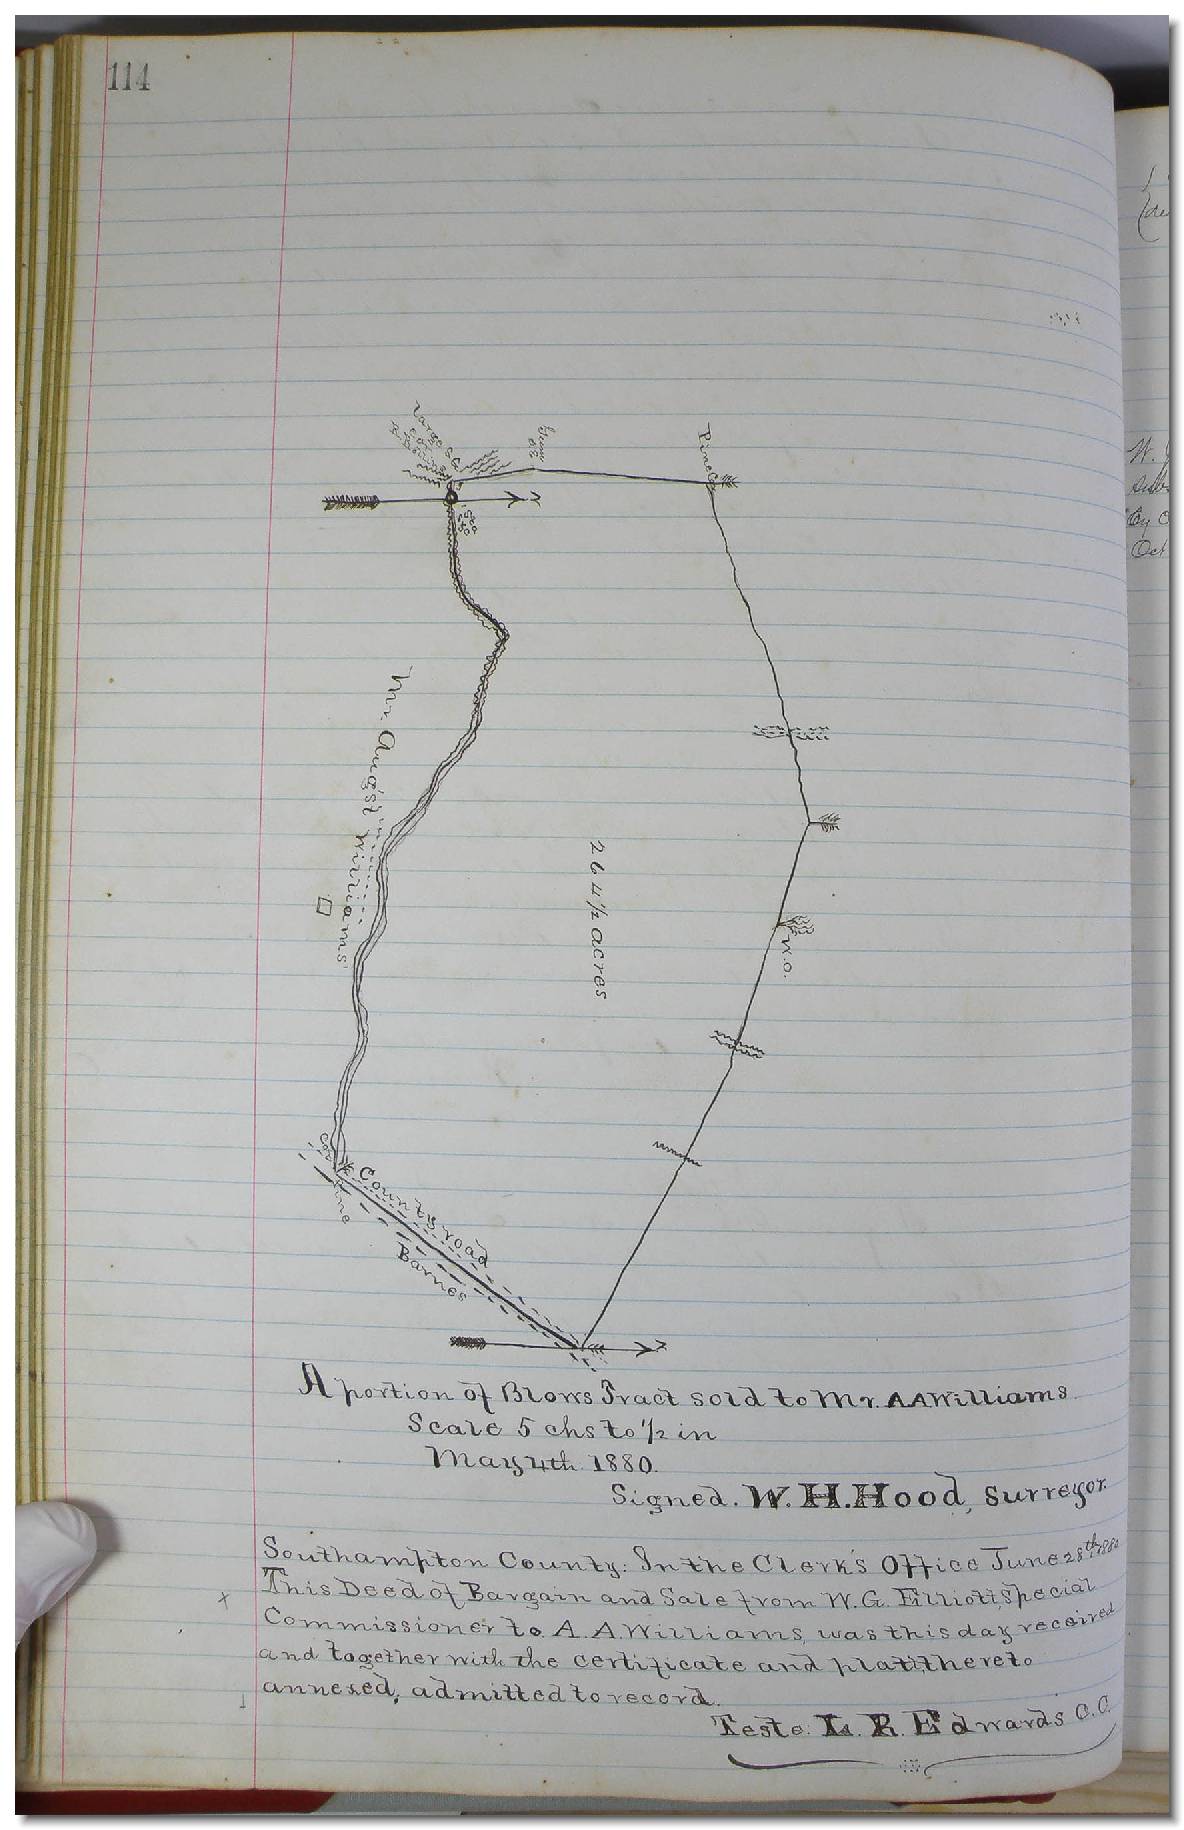 114
Gum
Pine
Mr. Aug'st Williams'
264½ acres
W.O.
Pine
County road
Barnes
A portion of Blows Tract sold to Mr. A A Williams
Scale 5 chs to ½ in
May 4th 1880.
Signed. W. H. Hood, surveyor.
Southampton County: In the Clerk's Office June 28th 1880
This Deed of Bargain and Sale from W. G. Elliott, Special
Commissioner to A. A. Williams, was this day received
and together with the certificate and platt, thereto
annexed, admitted to record.
Teste. L. R. Edwards C.C.
W.
Oct